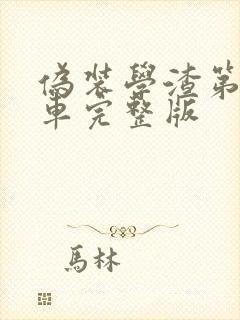 偽裝學渣第
車完整版
馬林